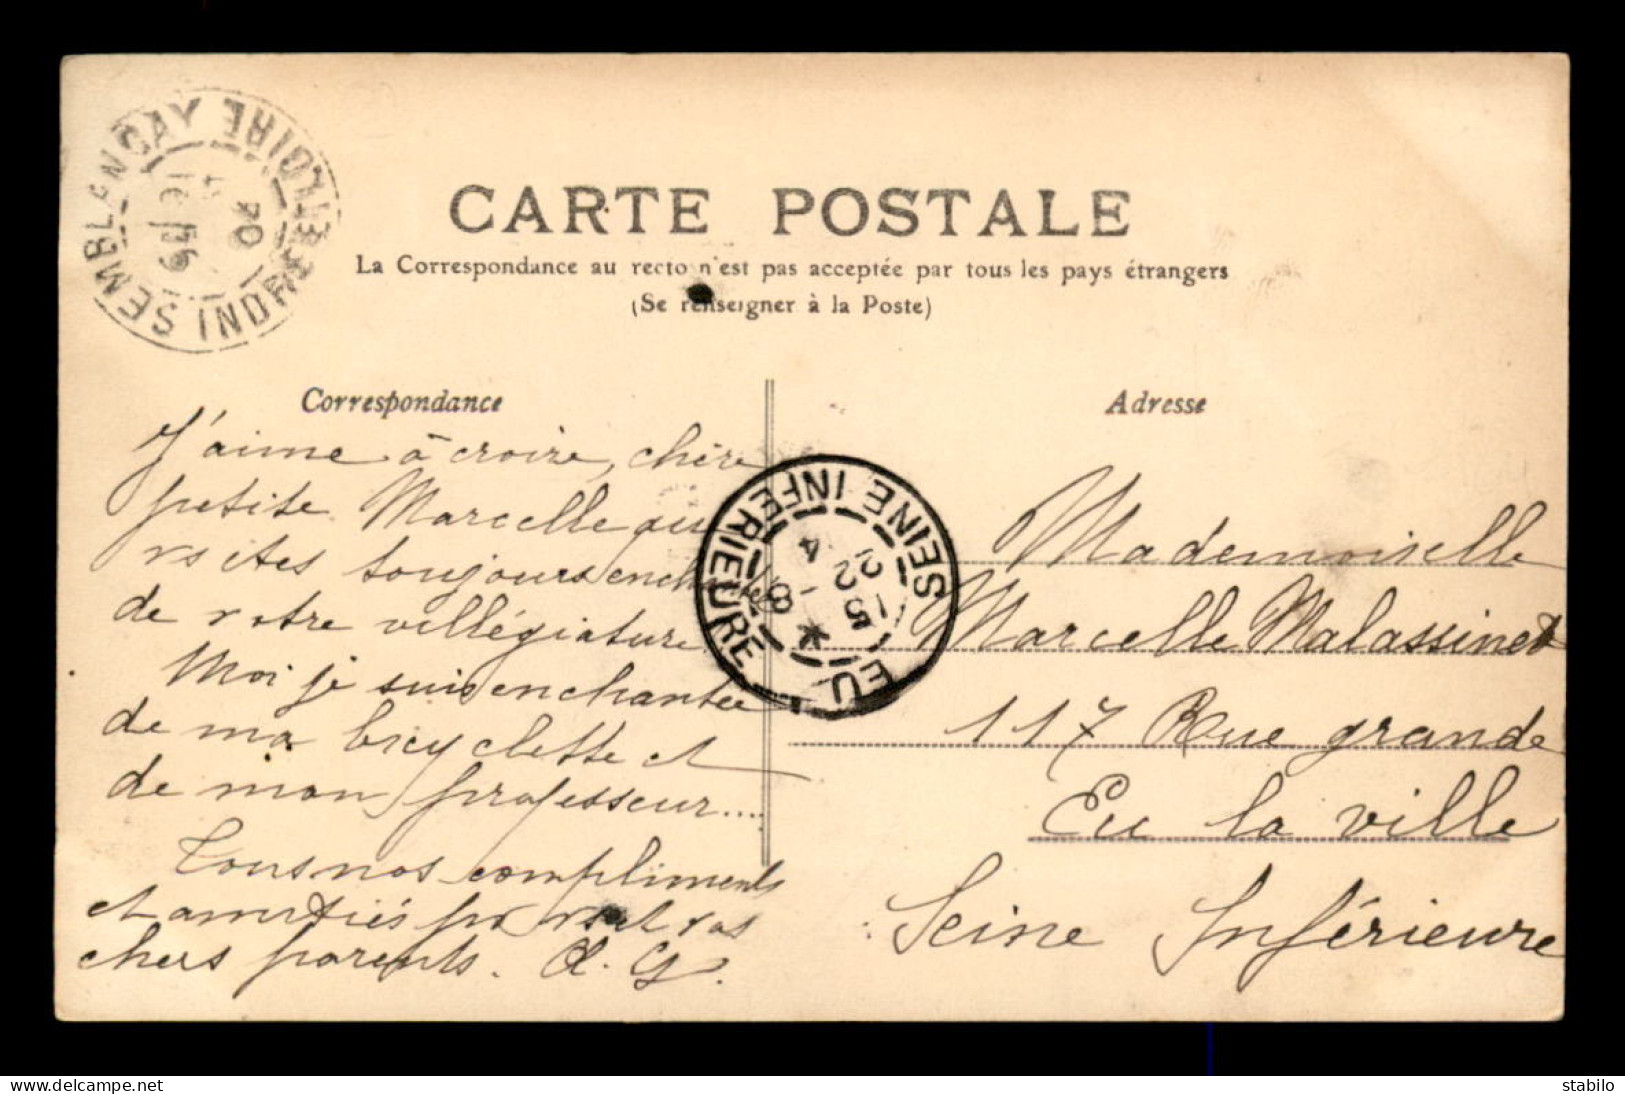 SEMBLANÇAY INDRE ET LOIRE
CARTE POSTALE
La Correspondance au recto n'est pas acceptée par tous les pays étrangers
(Se renseigner à la Poste)
Correspondance
J'aime à croire, chère
petite Marcelle que
vs êtes toujours enchantée
de votre villégiature
Moi je suis enchantée
de ma bicyclette et
de mon professeur....
Tous nos compliments
et amitiés pr vs et vos
chers parents. A. G.
EU SEINE INFÉRIEURE
Adresse
Mademoiselle
Marcelle Malassinet
117 Rue grande
Eu la ville
Seine Inférieure
stabilo
www.delcampe.net